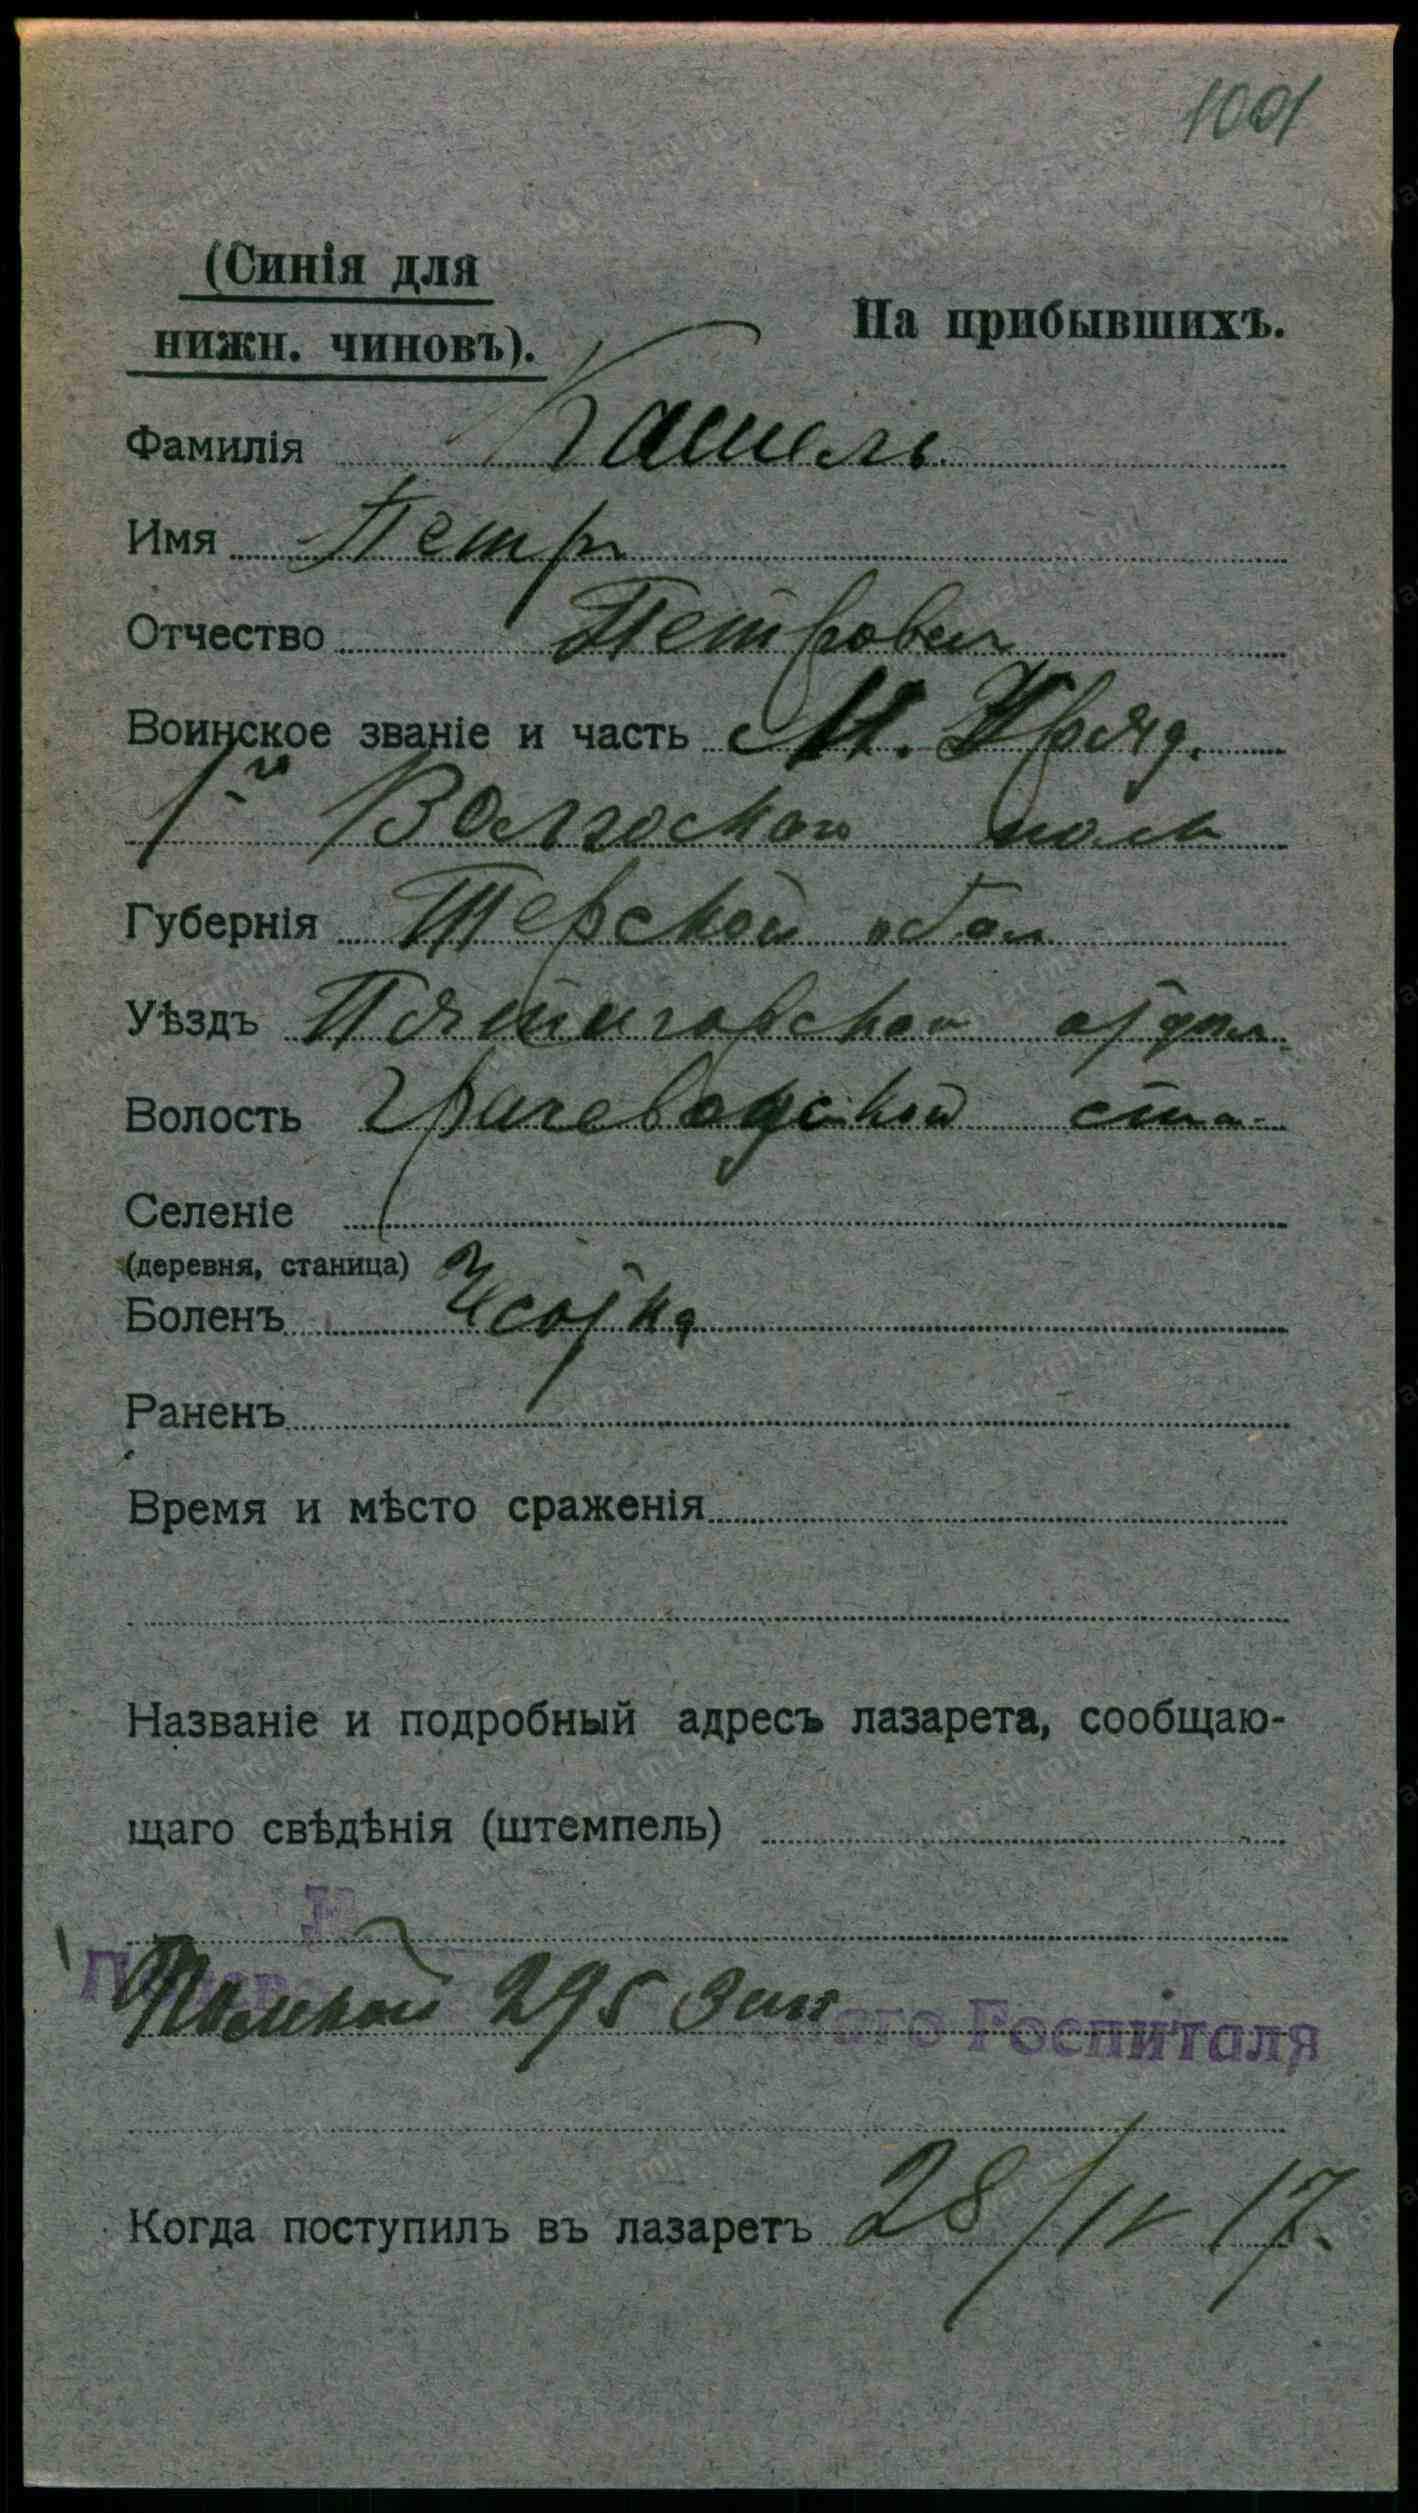 1001
(Синія для
нижн. чиновъ).
На прибывшихъ.
Фамилія Кашель
Имя Петръ
Отчество Петрович
Воинское званіе и часть М. Уряд.
1й Волгскаго полк
Губернія Терской обл
Уѣздъ Пятигорской отдел
Волость ста-
Селеніе
(деревня, станица)
Боленъ Чесотка
Раненъ
Время и мѣсто сраженія
Названіе и подробный адресъ лазарета, сообщаю-
щаго свѣдѣнія (штемпель)
295 Госпиталя
Когда поступилъ въ лазаретъ 28/IV 17.